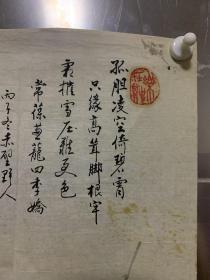 孤胆凌空倚碧霄
只缘高耸脚根牢
霜摧雪压难更色
常葆葱茏四季娇
丙子冬赤壁野人